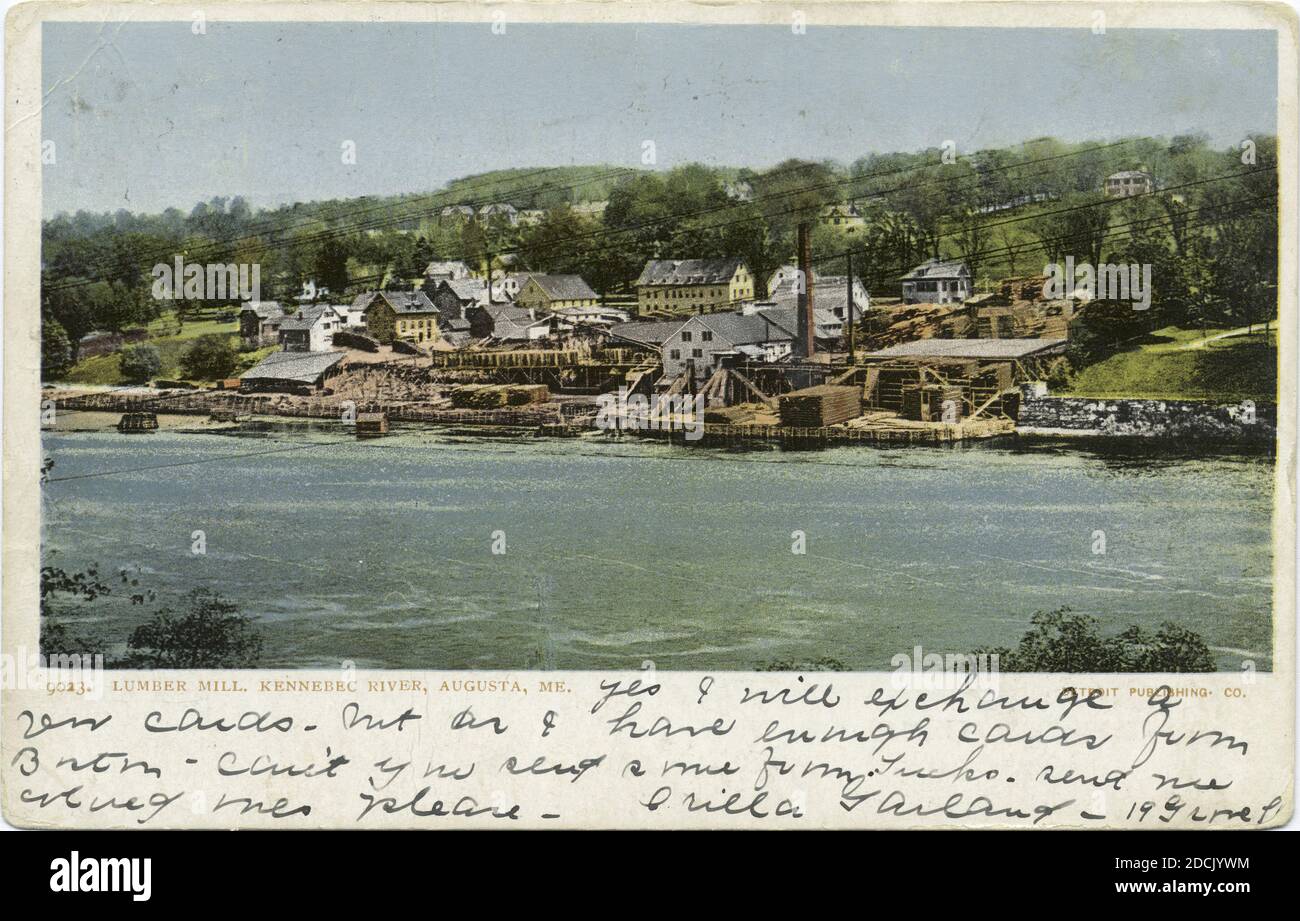 9023. LUMBER MILL. KENNEBEC RIVER, AUGUSTA, ME.
DETROIT PUBLISHING CO.
yes I will exchange a
few cards - but as I have enough cards from
Boston - can't you send some from. send me
colored ones please - Orilla Garland - 19 Grove
alamy
Image ID: 2DCJYWM
www.alamy.com